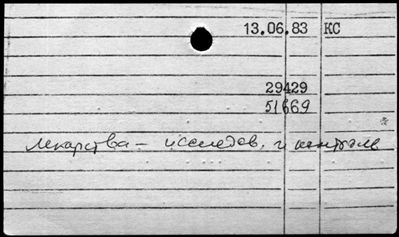 13.06.83 КС
29429
51669
лекарства – исследов. и контроль